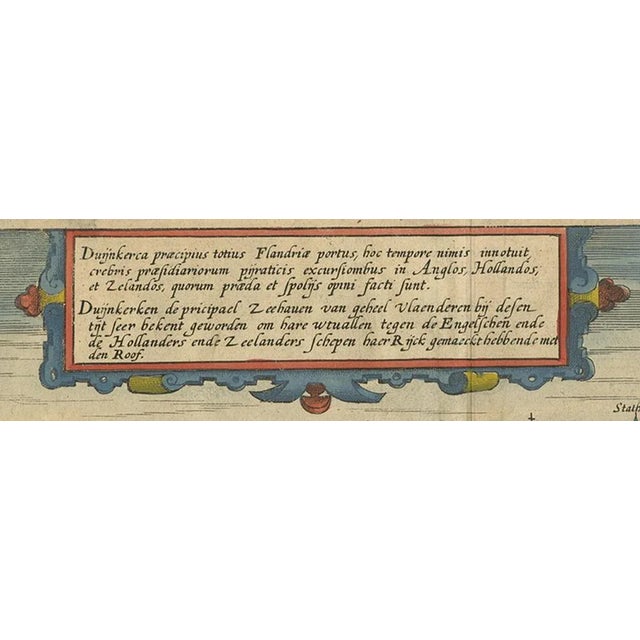 Duijnkerca præcipius totius Flandriæ portus, hoc tempore nimis innotuit,
crebris præsidiariorum pijraticis excursionibus in Anglos, Hollandos,
et Zelandos, quorum præda et spolijs opini facti sunt.
Duijnkerken de pricipael Zeehauen van geheel Vlaenderen bij desen
tijt seer bekent geworden om hare wtuallen tegen de Engelschen ende
de Hollanders ende Zeelanders schepen haer Rijck gemaeckt hebbende met
den Roof.